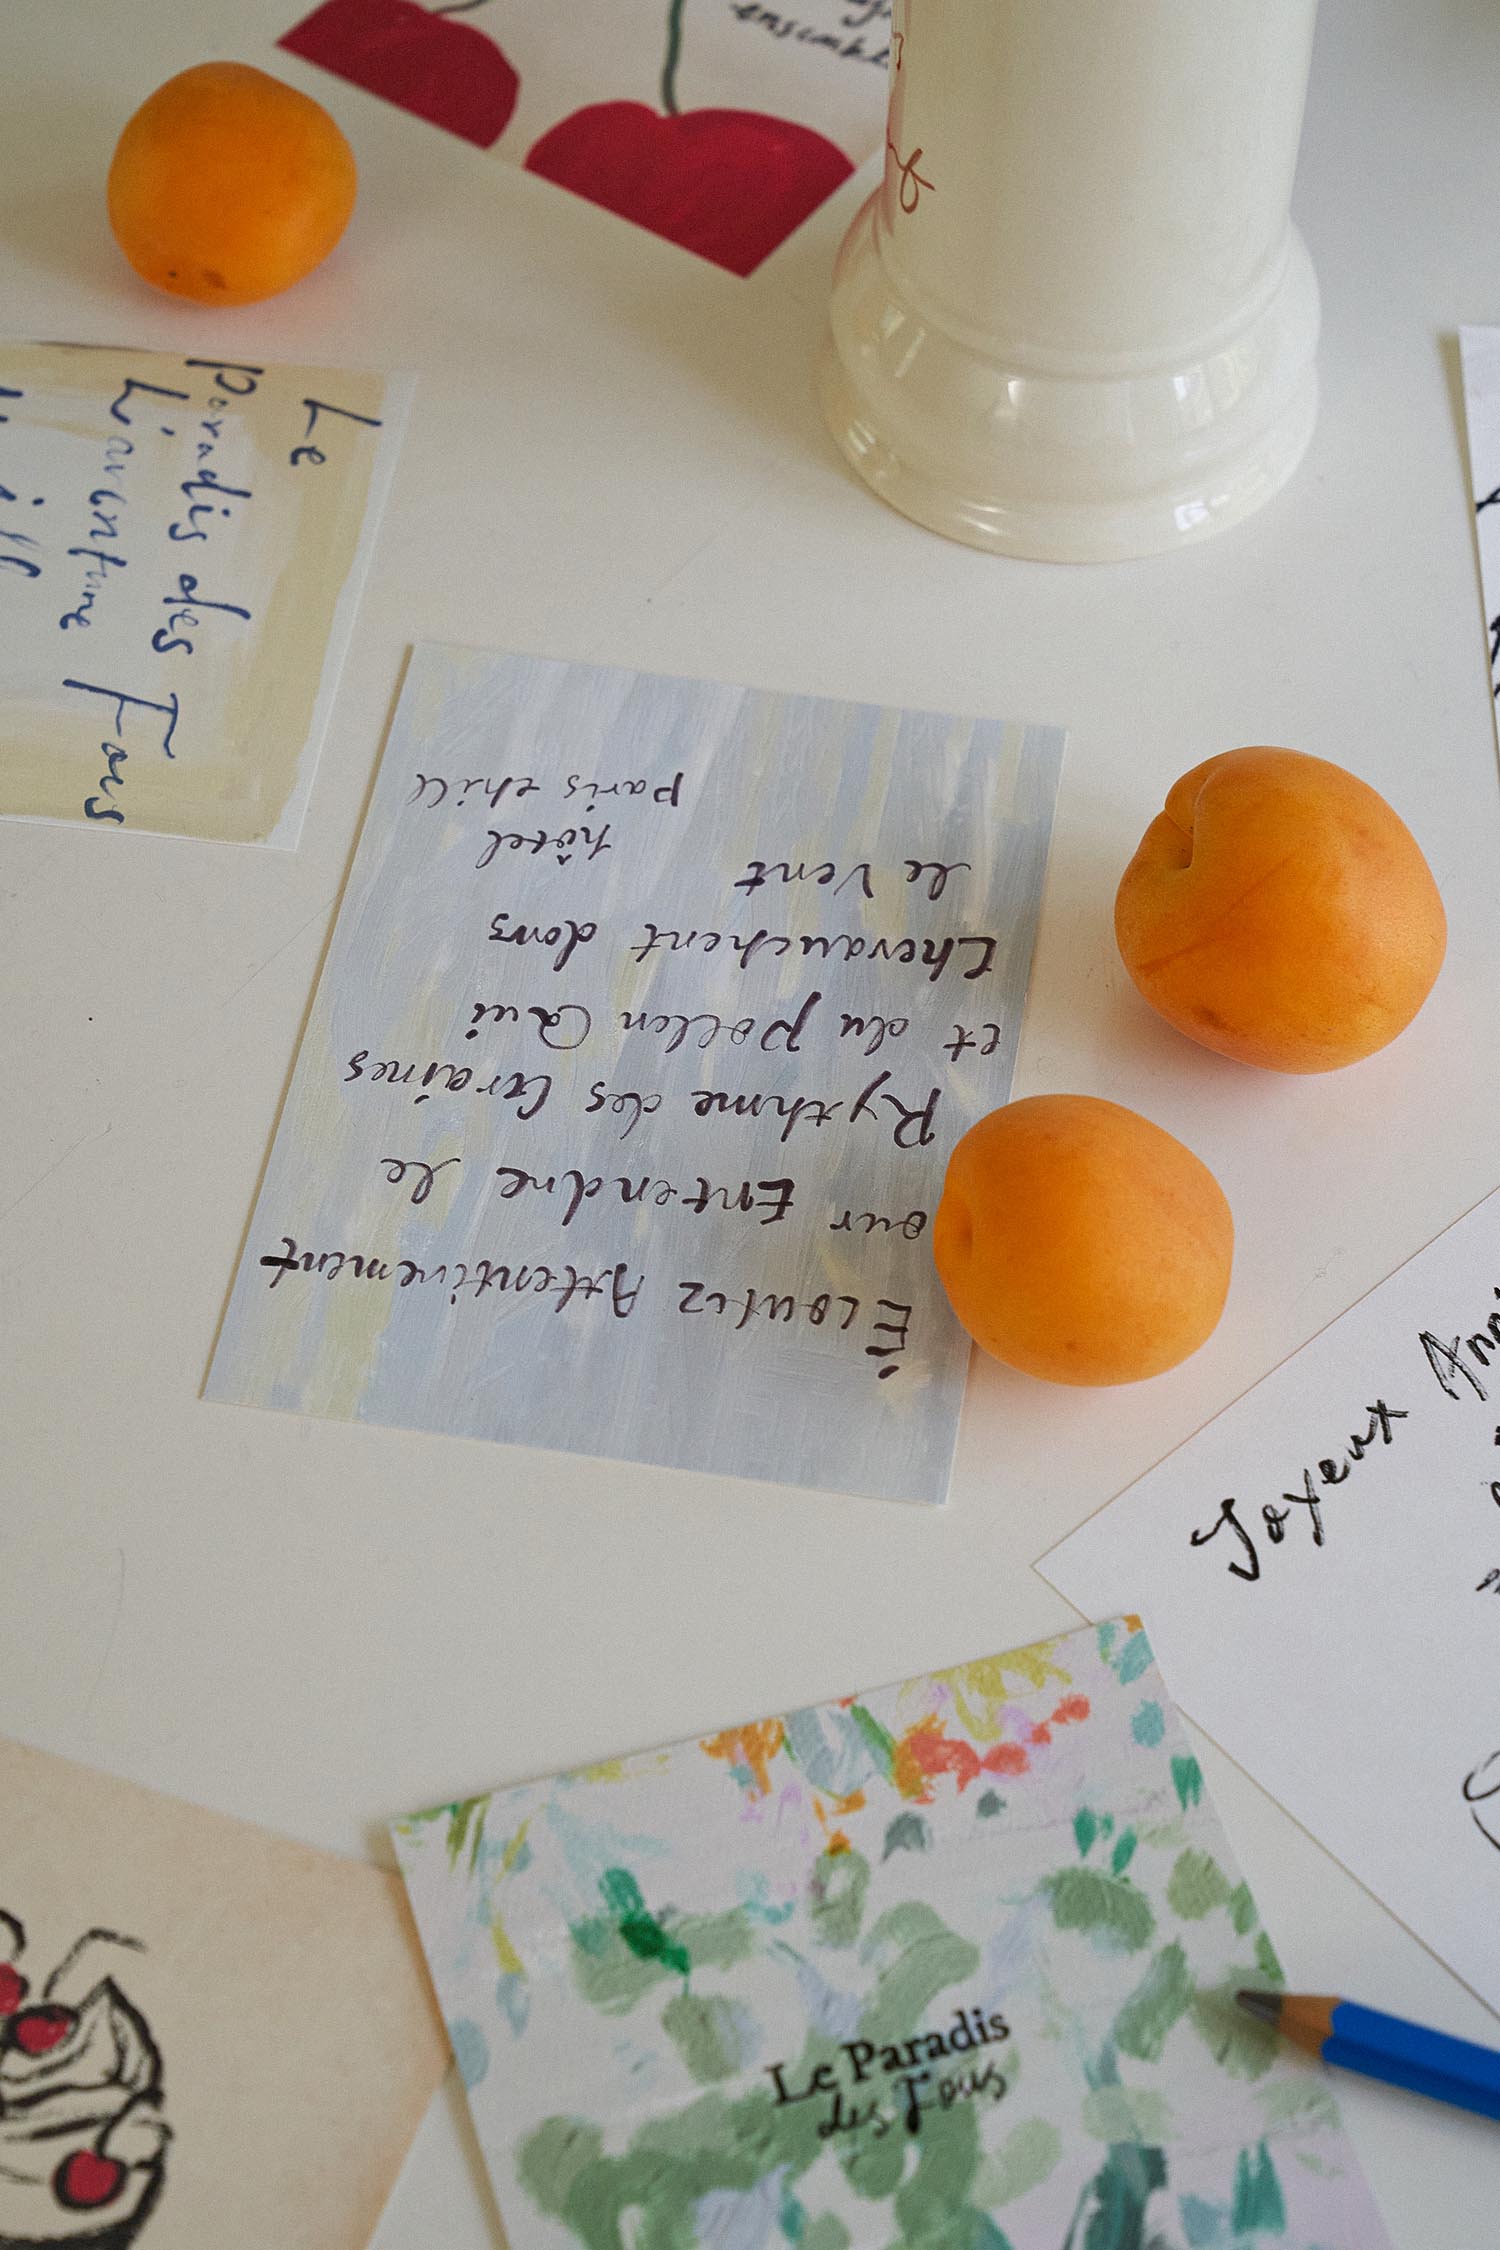 ensemble
Le
Paradis des Fous
L'aventure
Écoutez Attentivement
our Entendre le
Rythme des Graines
et du Pollen Qui
Chevauchent dans
le Vent
hôtel
paris chill
Joyeux
Le Paradis
des Fous